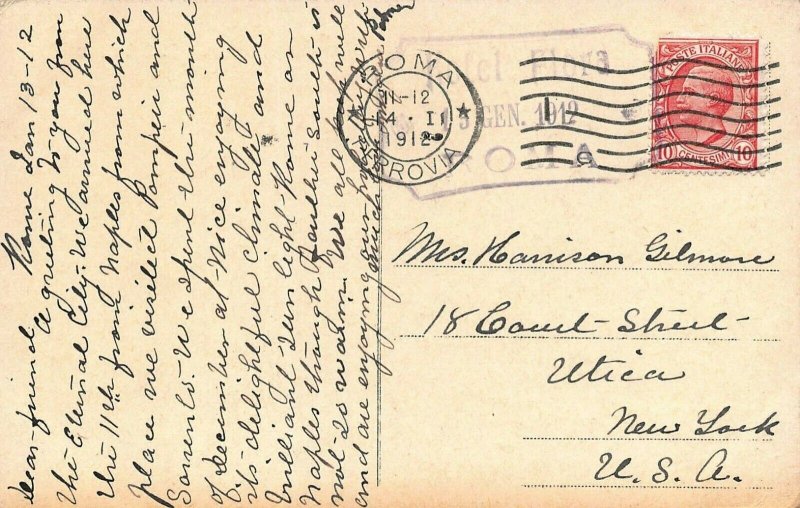 Rome Jan 13-12
Dear friend
A greeting to you from
the Eternal City. We arrived here
the 11th from Naples from which
place we visited Pompeii and
Sorrento. We spent the month
of December at Nice enjoying
its delightful climate and
brilliant sun light. Rome or
Naples though farther South is
not so warm. We all keep well
and are enjoying our holiday
much
Hotel Flora
13 GEN. 1912
ROMA
ROMA
11-12
14 · I
1912
FERROVIA
POSTE ITALIANE
10 CENTESIMI 10
Mrs. Harrison Gilmore
18 Court Street
Utica
New York
U. S. A.